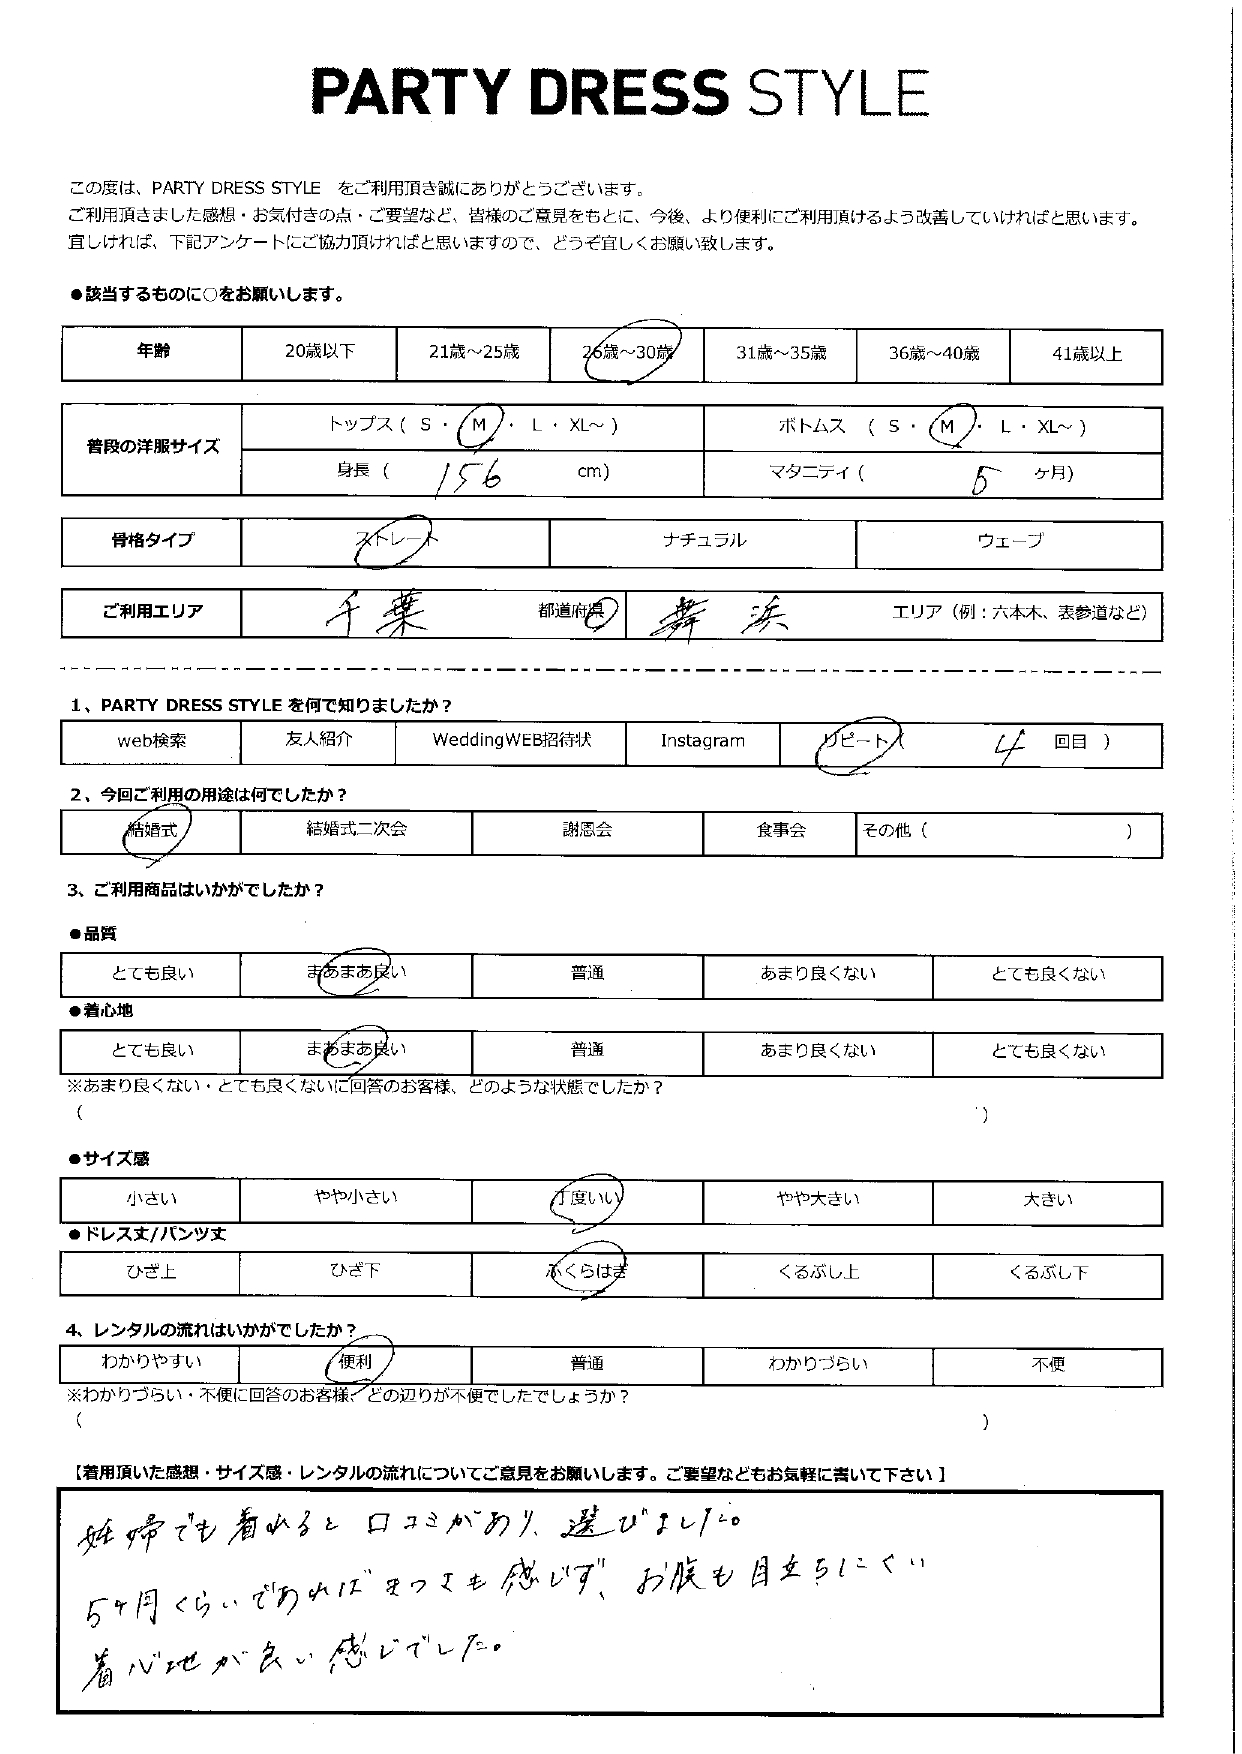 PARTY DRESS STYLE
この度は、PARTY DRESS STYLE をご利用頂き誠にありがとうございます。
ご利用頂きました感想・お気付きの点・ご要望など、皆様のご意見をもとに、今後、より便利にご利用頂けるよう改善していければと思います。
宜しければ、下記アンケートにご協力頂ければと思いますので、どうぞ宜しくお願い致します。
●該当するものに○をお願いします。
年齢 20歳以下 21歳～25歳 26歳～30歳 31歳～35歳 36歳～40歳 41歳以上
普段の洋服サイズ トップス ( S ・ M ・ L ・ XL～ ) ボトムス ( S ・ M ・ L ・ XL～ )
身長 ( 156 cm) マタニティ ( 5 ヶ月)
骨格タイプ ストレート ナチュラル ウェーブ
ご利用エリア 千葉 都道府県 舞浜 エリア（例：六本木、表参道など）
1、PARTY DRESS STYLE を何で知りましたか？
web検索 友人紹介 WeddingWEB招待状 Instagram リピート ( 4 回目 )
2、今回ご利用の用途は何でしたか？
結婚式 結婚式二次会 謝恩会 食事会 その他 ( )
3、ご利用商品はいかがでしたか？
●品質
とても良い まあまあ良い 普通 あまり良くない とても良くない
●着心地
とても良い まあまあ良い 普通 あまり良くない とても良くない
※あまり良くない・とても良くないに回答のお客様、どのような状態でしたか？
( )
●サイズ感
小さい やや小さい 丁度いい やや大きい 大きい
●ドレス丈/パンツ丈
ひざ上 ひざ下 ふくらはぎ くるぶし上 くるぶし下
4、レンタルの流れはいかがでしたか？
わかりやすい 便利 普通 わかりづらい 不便
※わかりづらい・不便に回答のお客様、どの辺りが不便でしたでしょうか？
( )
【着用頂いた感想・サイズ感・レンタルの流れについてご意見をお願いします。ご要望などもお気軽に書いて下さい】
妊婦でも着れると口コミがあり、選びました。
5ヶ月くらいであればきつさも感じず、お腹も目立ちにくい
着心地が良い感じでした。